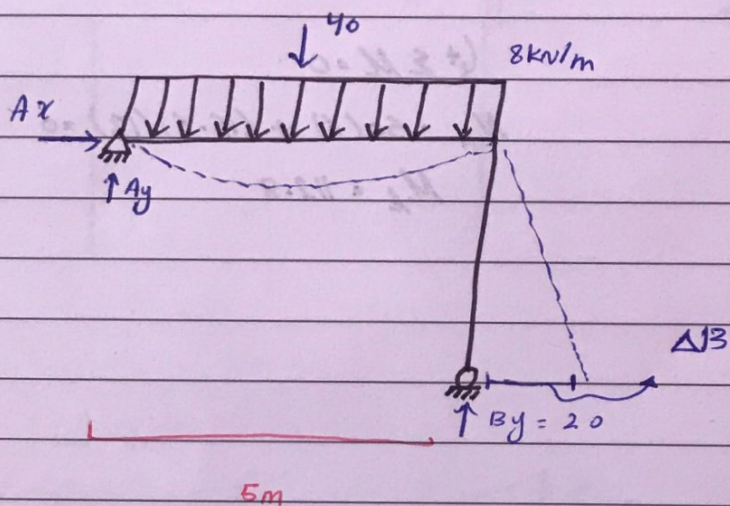 40
8kN/m
Ax
Ay
ΔB
By = 20
5m